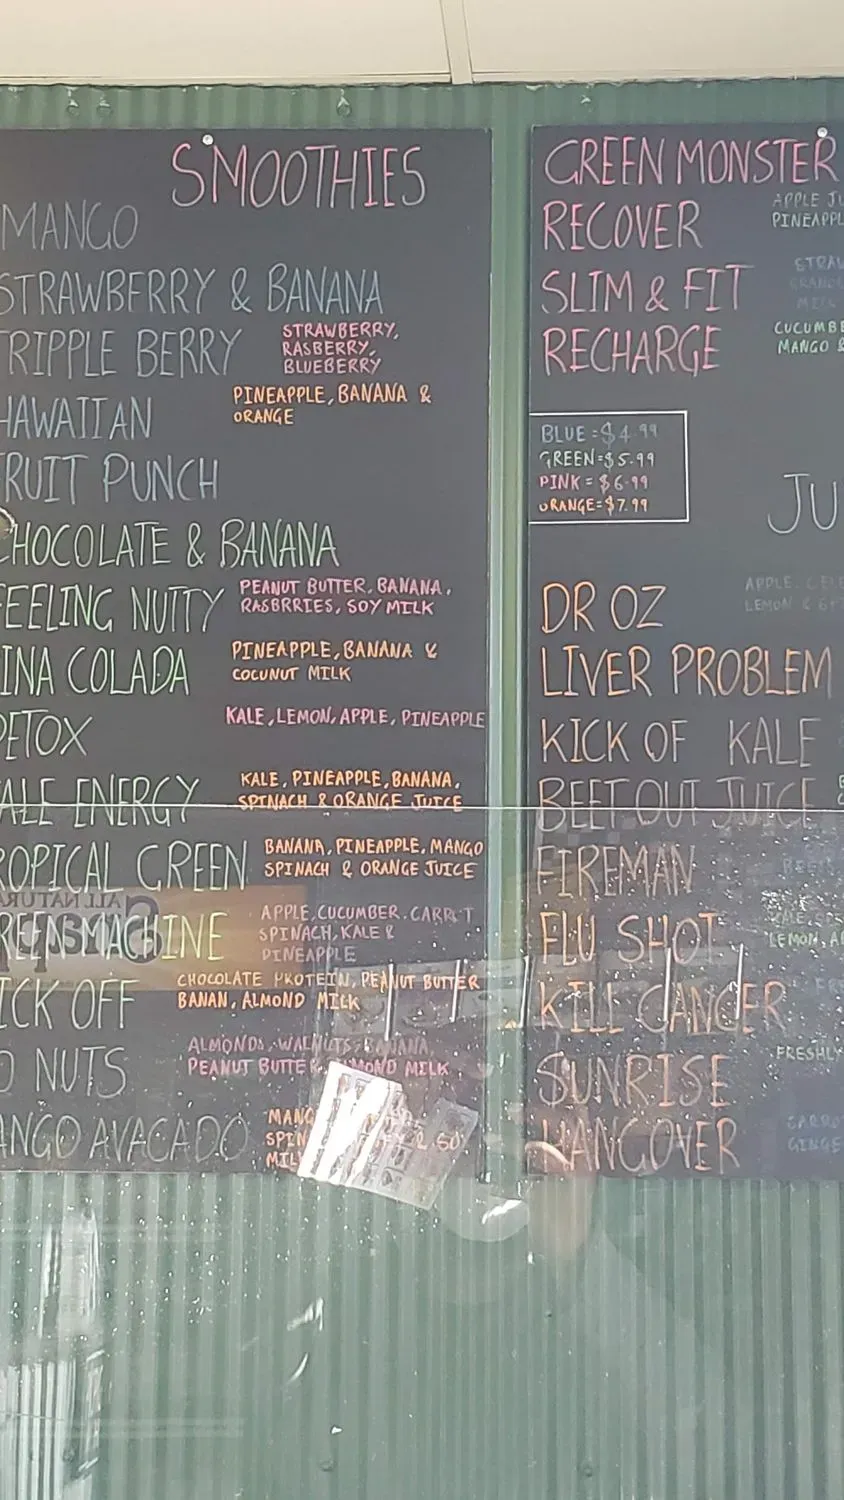 SMOOTHIES
MANGO
STRAWBERRY & BANANA
TRIPPLE BERRY
STRAWBERRY,
RASBERRY,
BLUEBERRY
HAWAIIAN
PINEAPPLE, BANANA &
ORANGE
RUIT PUNCH
CHOCOLATE & BANANA
FEELING NUTTY
PEANUT BUTTER, BANANA,
RASBRRIES, SOY MILK
INA COLADA
PINEAPPLE, BANANA &
COCUNUT MILK
DETOX
KALE, LEMON, APPLE, PINEAPPLE
ALE ENERGY
KALE, PINEAPPLE, BANANA,
SPINACH & ORANGE JUICE
ROPICAL GREEN
BANANA, PINEAPPLE, MANGO
SPINACH & ORANGE JUICE
REEN MACHINE
APPLE, CUCUMBER, CARROT
SPINACH, KALE &
PINEAPPLE
ICK OFF
CHOCOLATE PROTEIN, PEANUT BUTTER
BANAN, ALMOND MILK
O NUTS
ALMONDS, WALNUTS, BANANA,
PEANUT BUTTER, ALMOND MILK
ANGO AVACADO
MANG
SPIN
MIL
GREEN MONSTER
APPLE JU
PINEAPPL
RECOVER
SLIM & FIT
STRAW
RECHARGE
CUCUMBE
MANGO &
BLUE = $4.99
GREEN = $5.99
PINK = $6.99
ORANGE = $7.99
JU
DR OZ
APPLE, CELE
LEMON &
LIVER PROBLEM
KICK OF KALE
BEET OUT JUICE
FIREMAN
FLU SHOT
LEMON, AP
KILL CANCER
SUNRISE
FRESHLY
HANGOVER
CARRO
GINGE
ALL NATURA
Snap